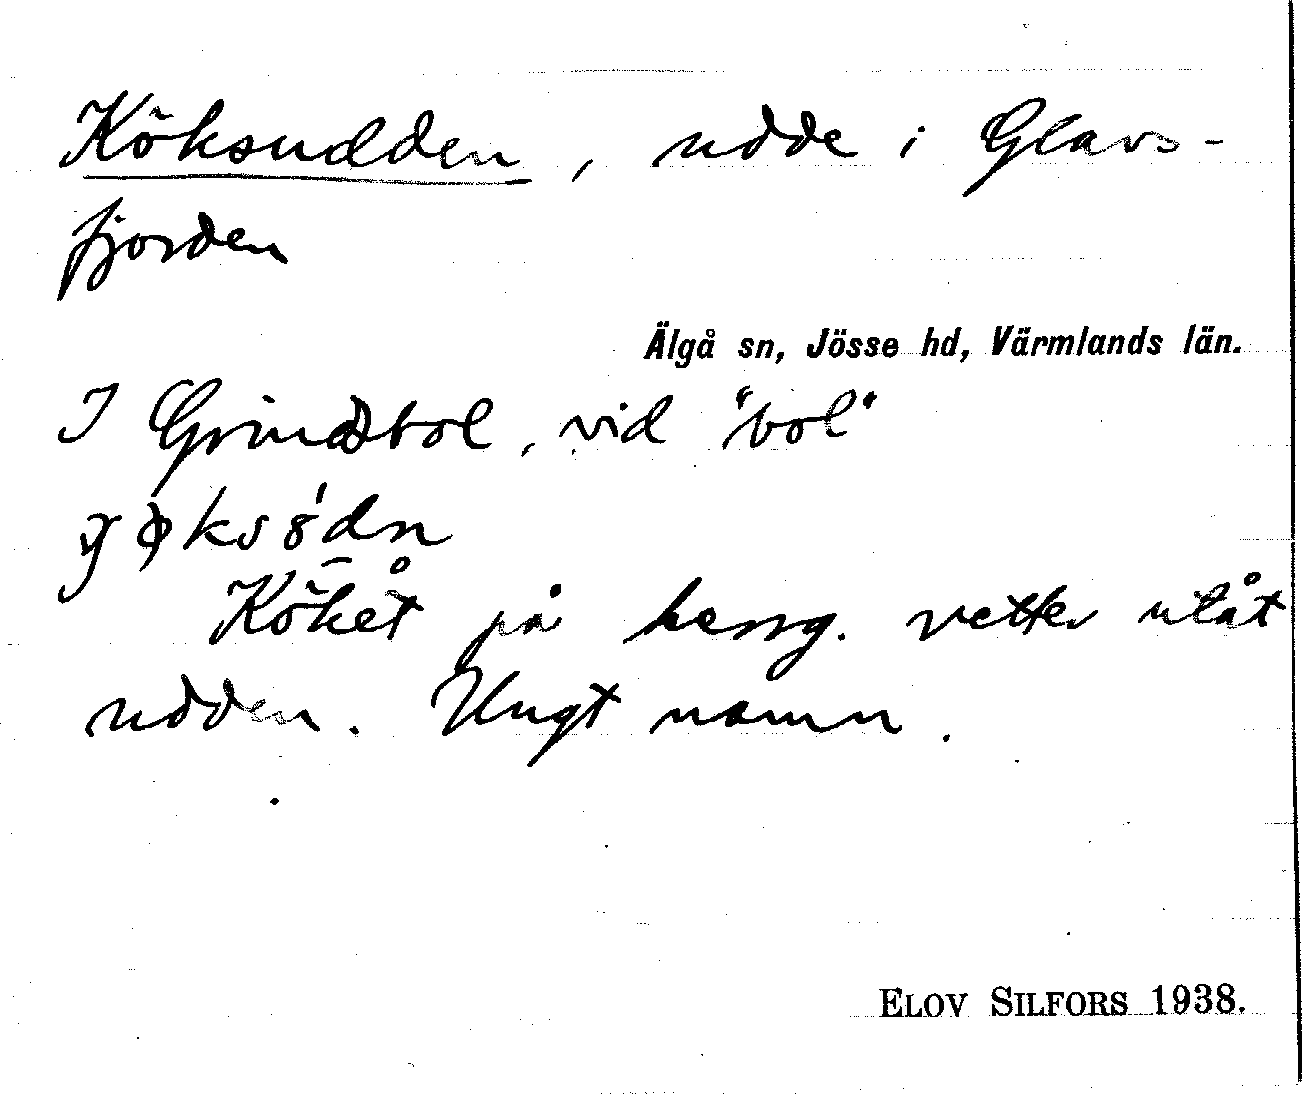 Köksudden, udde i Glavs-
fjorden
Älgå sn, Jösse hd, Värmlands län.
I Grindsbol, vid "bol"
Köket på herrg. vetter utåt
udden. Ungt namn.
ELOV SILFORS 1938.